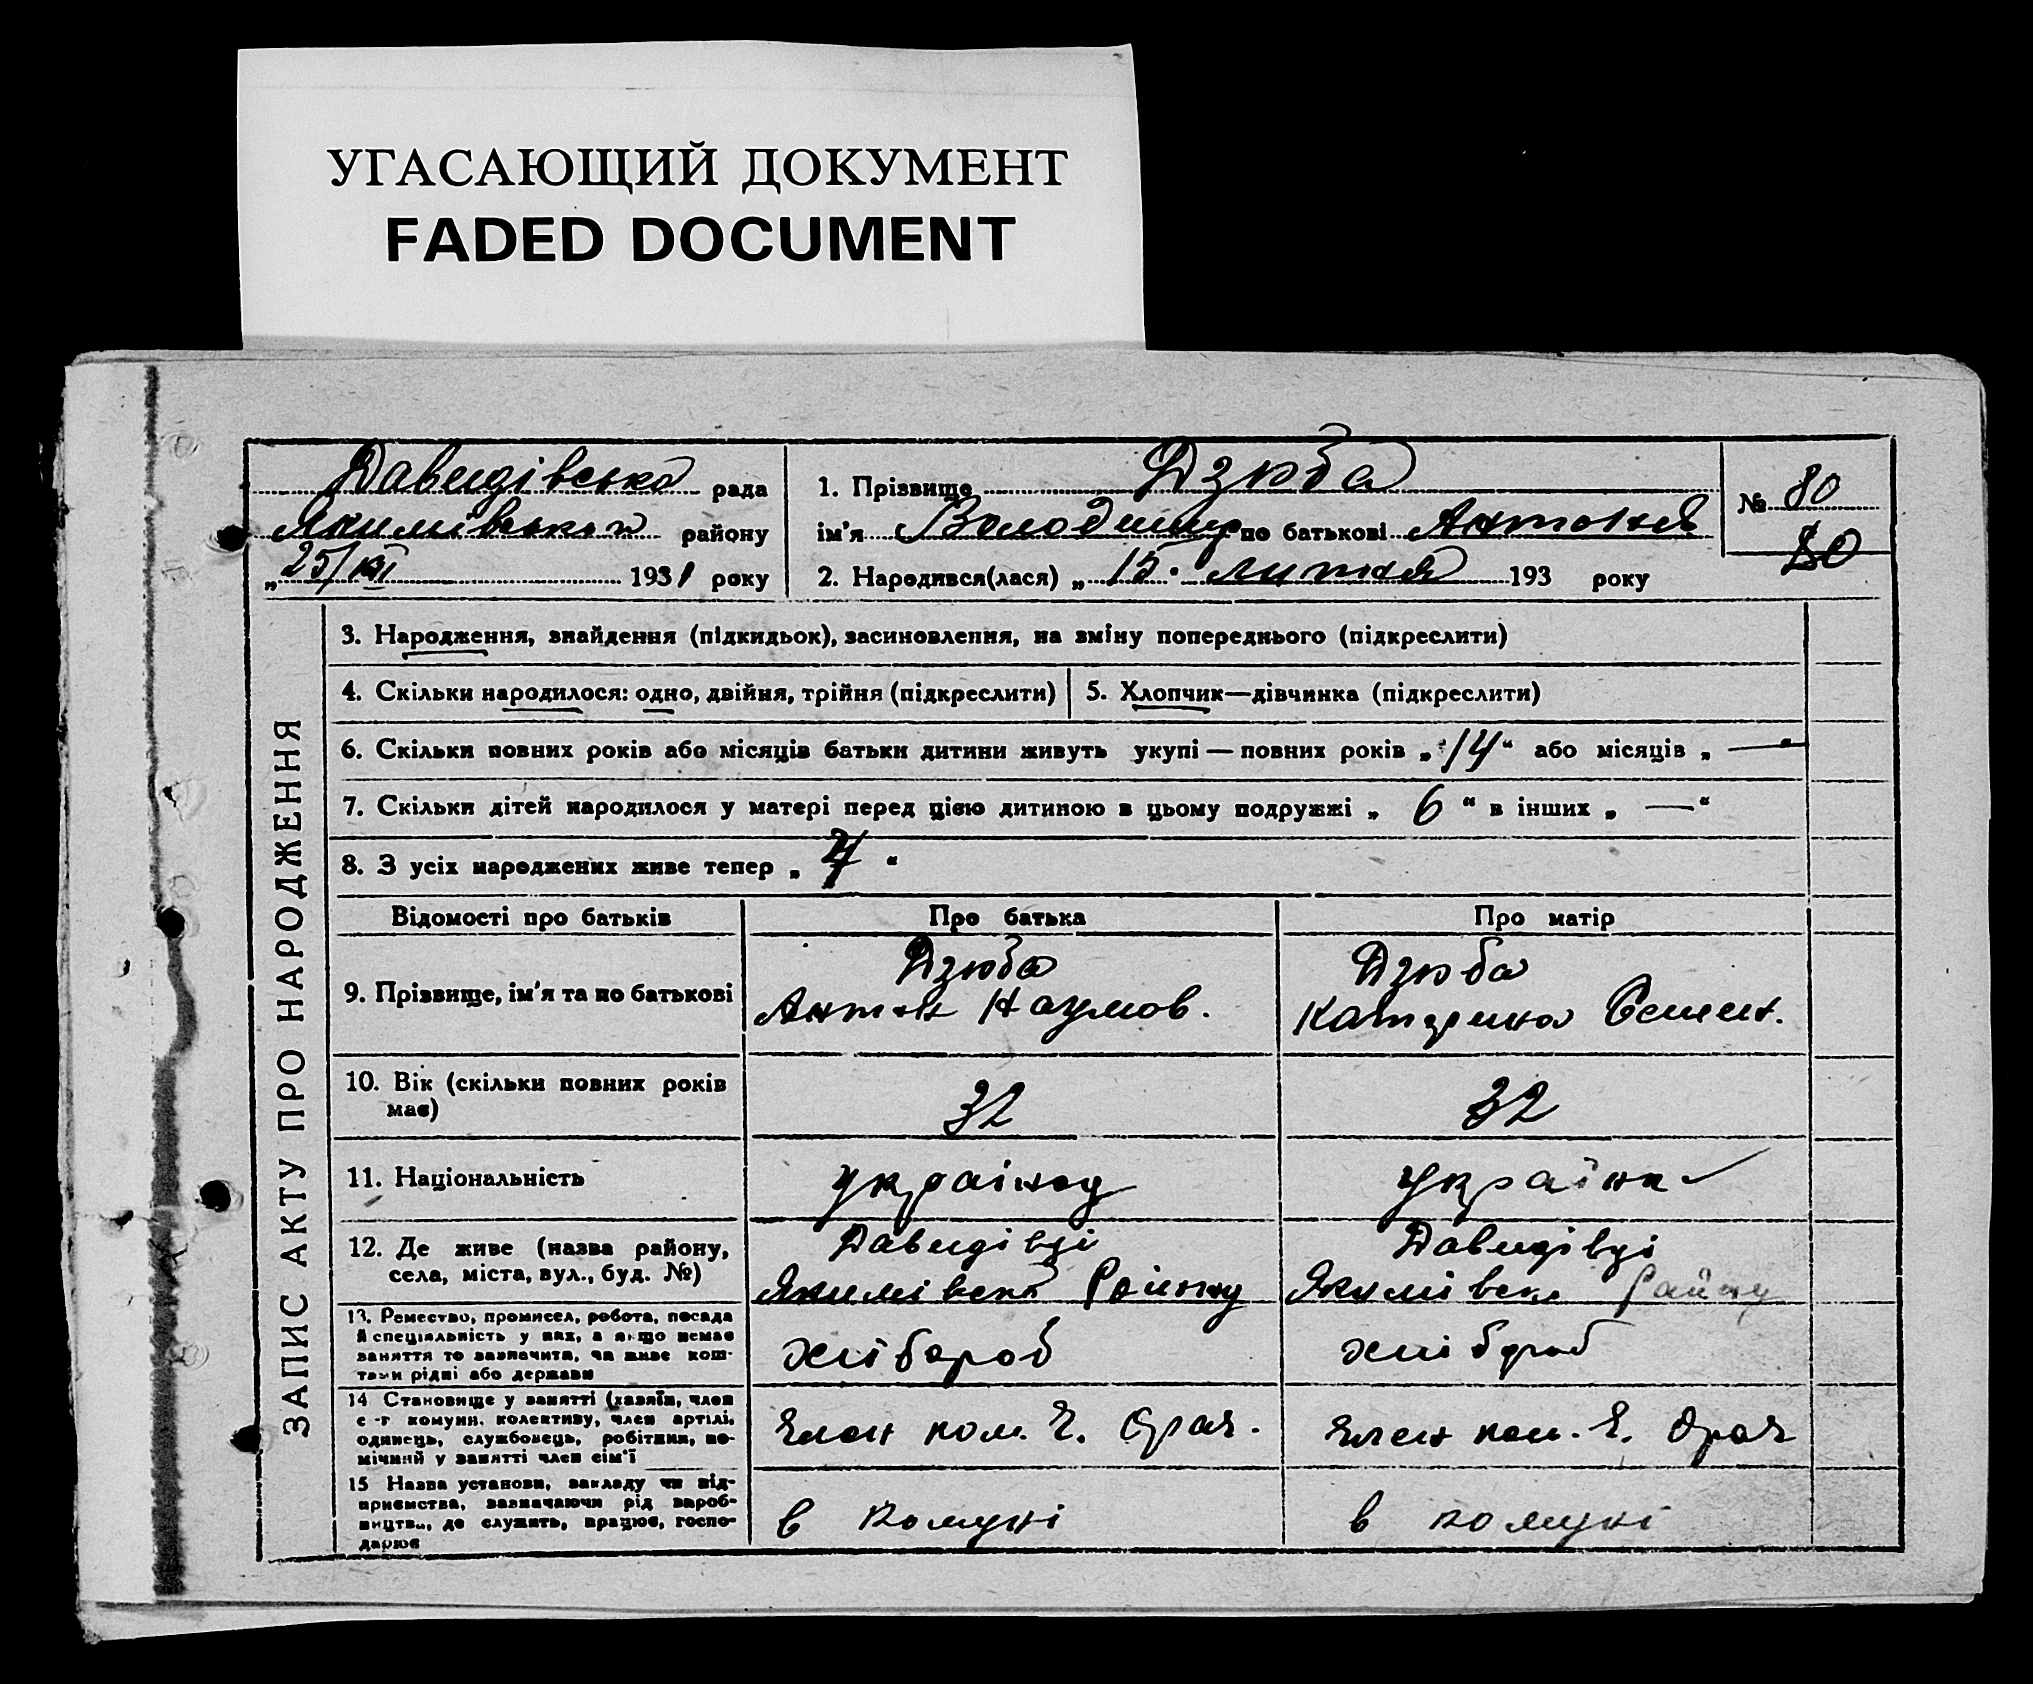 УГАСАЮЩИЙ ДОКУМЕНТ
FADED DOCUMENT
Давидівська рада
Якимівського району
„25/VII 1931 року
1. Прізвище Дзюба
ім'я Володимир по батькові Антонов
2. Народився(лася) „15. липня 193 року
№ 80
80
ЗАПИС АКТУ ПРО НАРОДЖЕННЯ
3. Народження, знайдення (підкидьок), засиновлення, на зміну попереднього (підкреслити)
4. Скільки народилося: одно, двійня, трійня (підкреслити)
5. Хлопчик—дівчинка (підкреслити)
6. Скільки повних років або місяців батьки дитини живуть укупі — повних років „14“ або місяців „—“
7. Скільки дітей народилося у матері перед цією дитиною в цьому подружжі „6“ в інших „—“
8. З усіх народжених живе тепер „ “
Відомості про батьків Про батька Про матір
9. Прізвище, ім'я та по батькові
Дзюба
Антон Наумов.
Дзюба
Катерина Семен.
10. Вік (скільки повних років
має)
32
32
11. Національність
українец
українк
12. Де живе (назва району,
села, міста, вул., буд. №)
Давидівці
Якимівськ Району
Давидівці
Якимівськ Району
13. Ремество, промисел, робота, посада
й спеціяльність у них, а якщо немає
заняття то зазначити, чи живе кош-
тами рідні або держави
хлібороб
хлібороб
14 Становище у занятті (хазяїн, член
с-г комуни, колективу, член артілі,
одинець, службовець, робітник, по-
мічний у занятті член сім'ї
Член ком. Ч.
Член ком. Ч.
15 Назва установи, закладу чи під-
приємства, зазначаючи рід вироб-
ництва, де служить, працює, госпо-
дарює
в комуні
в комуні